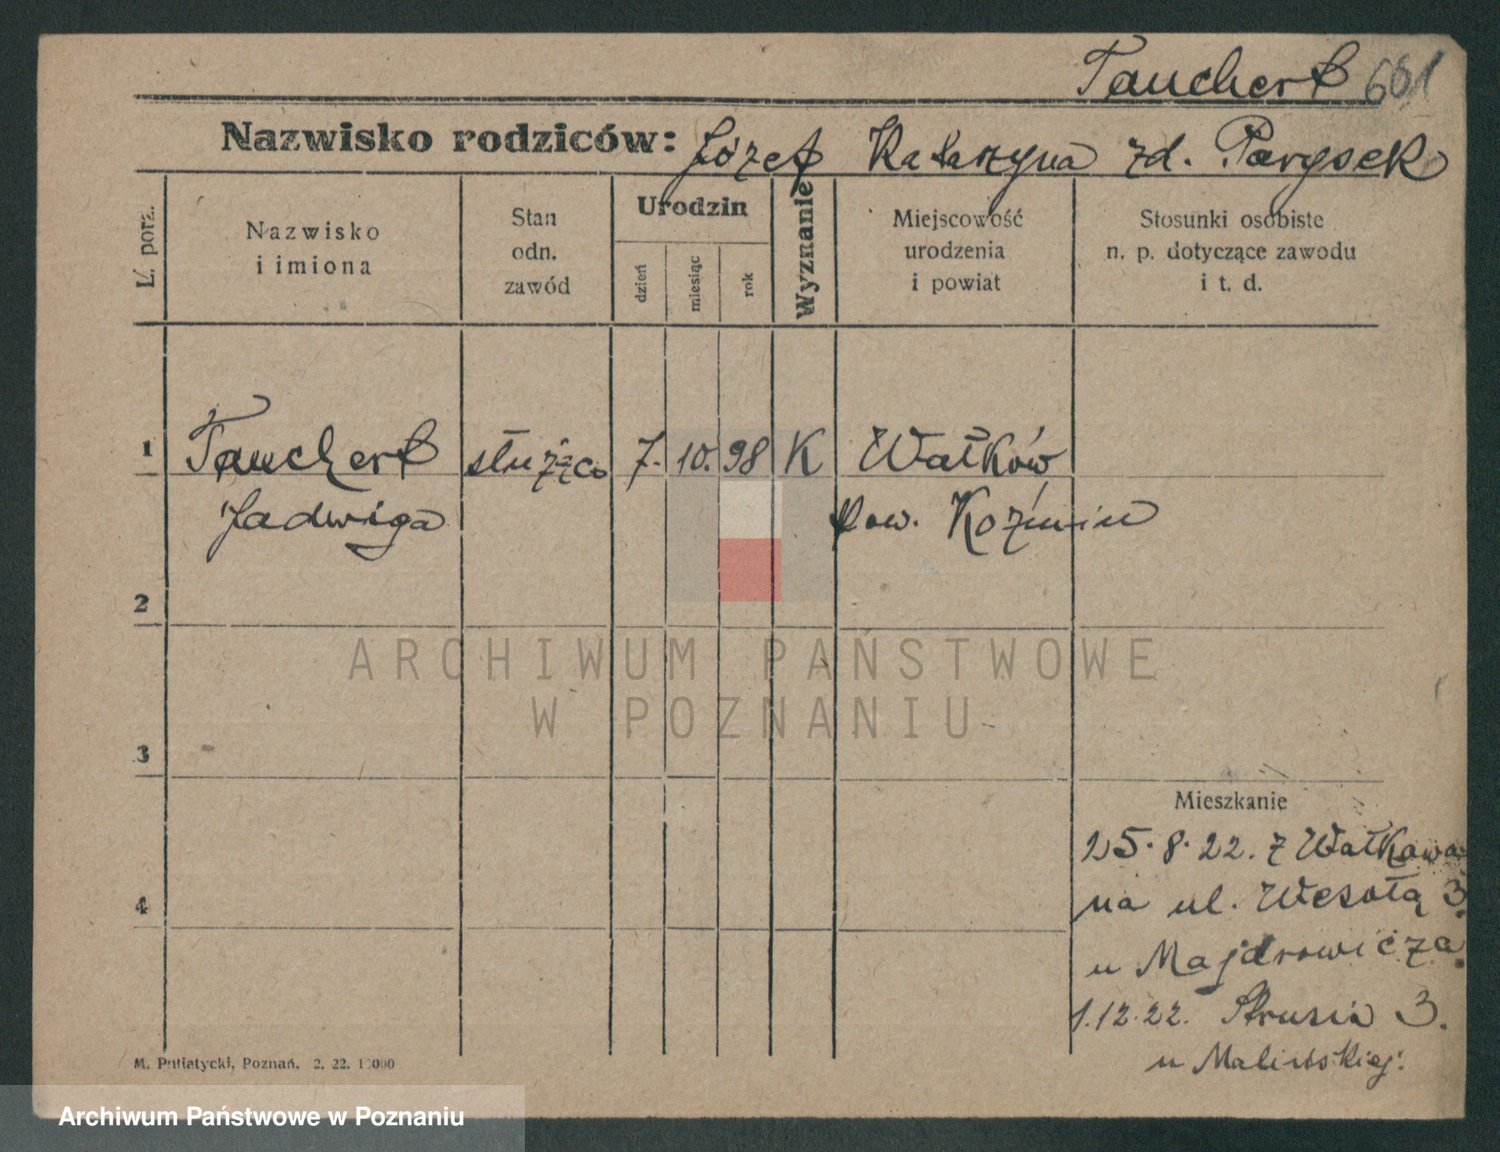 Tauchert 661
Nazwisko rodziców: Józef Katarzyna zd. Parysek
L. porz.
Nazwisko
i imiona
Stan
odn.
zawód
Urodzin
dzień
miesiąc
rok
Wyznanie
Miejscowość
urodzenia
i powiat
Stosunki osobiste
n. p. dotyczące zawodu
i t. d.
1 Tauchert służąca 7. 10. 98 K Wałków
Jadwiga pow. Koźmin
2
ARCHIWUM PAŃSTWOWE
W POZNANIU
3
Mieszkanie
25.8.22. z Wałkowa
4
na ul. Wesołą 3.
u Majdrowicza.
1.12.22. Strusia 3.
u Malińskiej.
M. Putiatycki, Poznań. 2. 22.
Archiwum Państwowe w Poznaniu